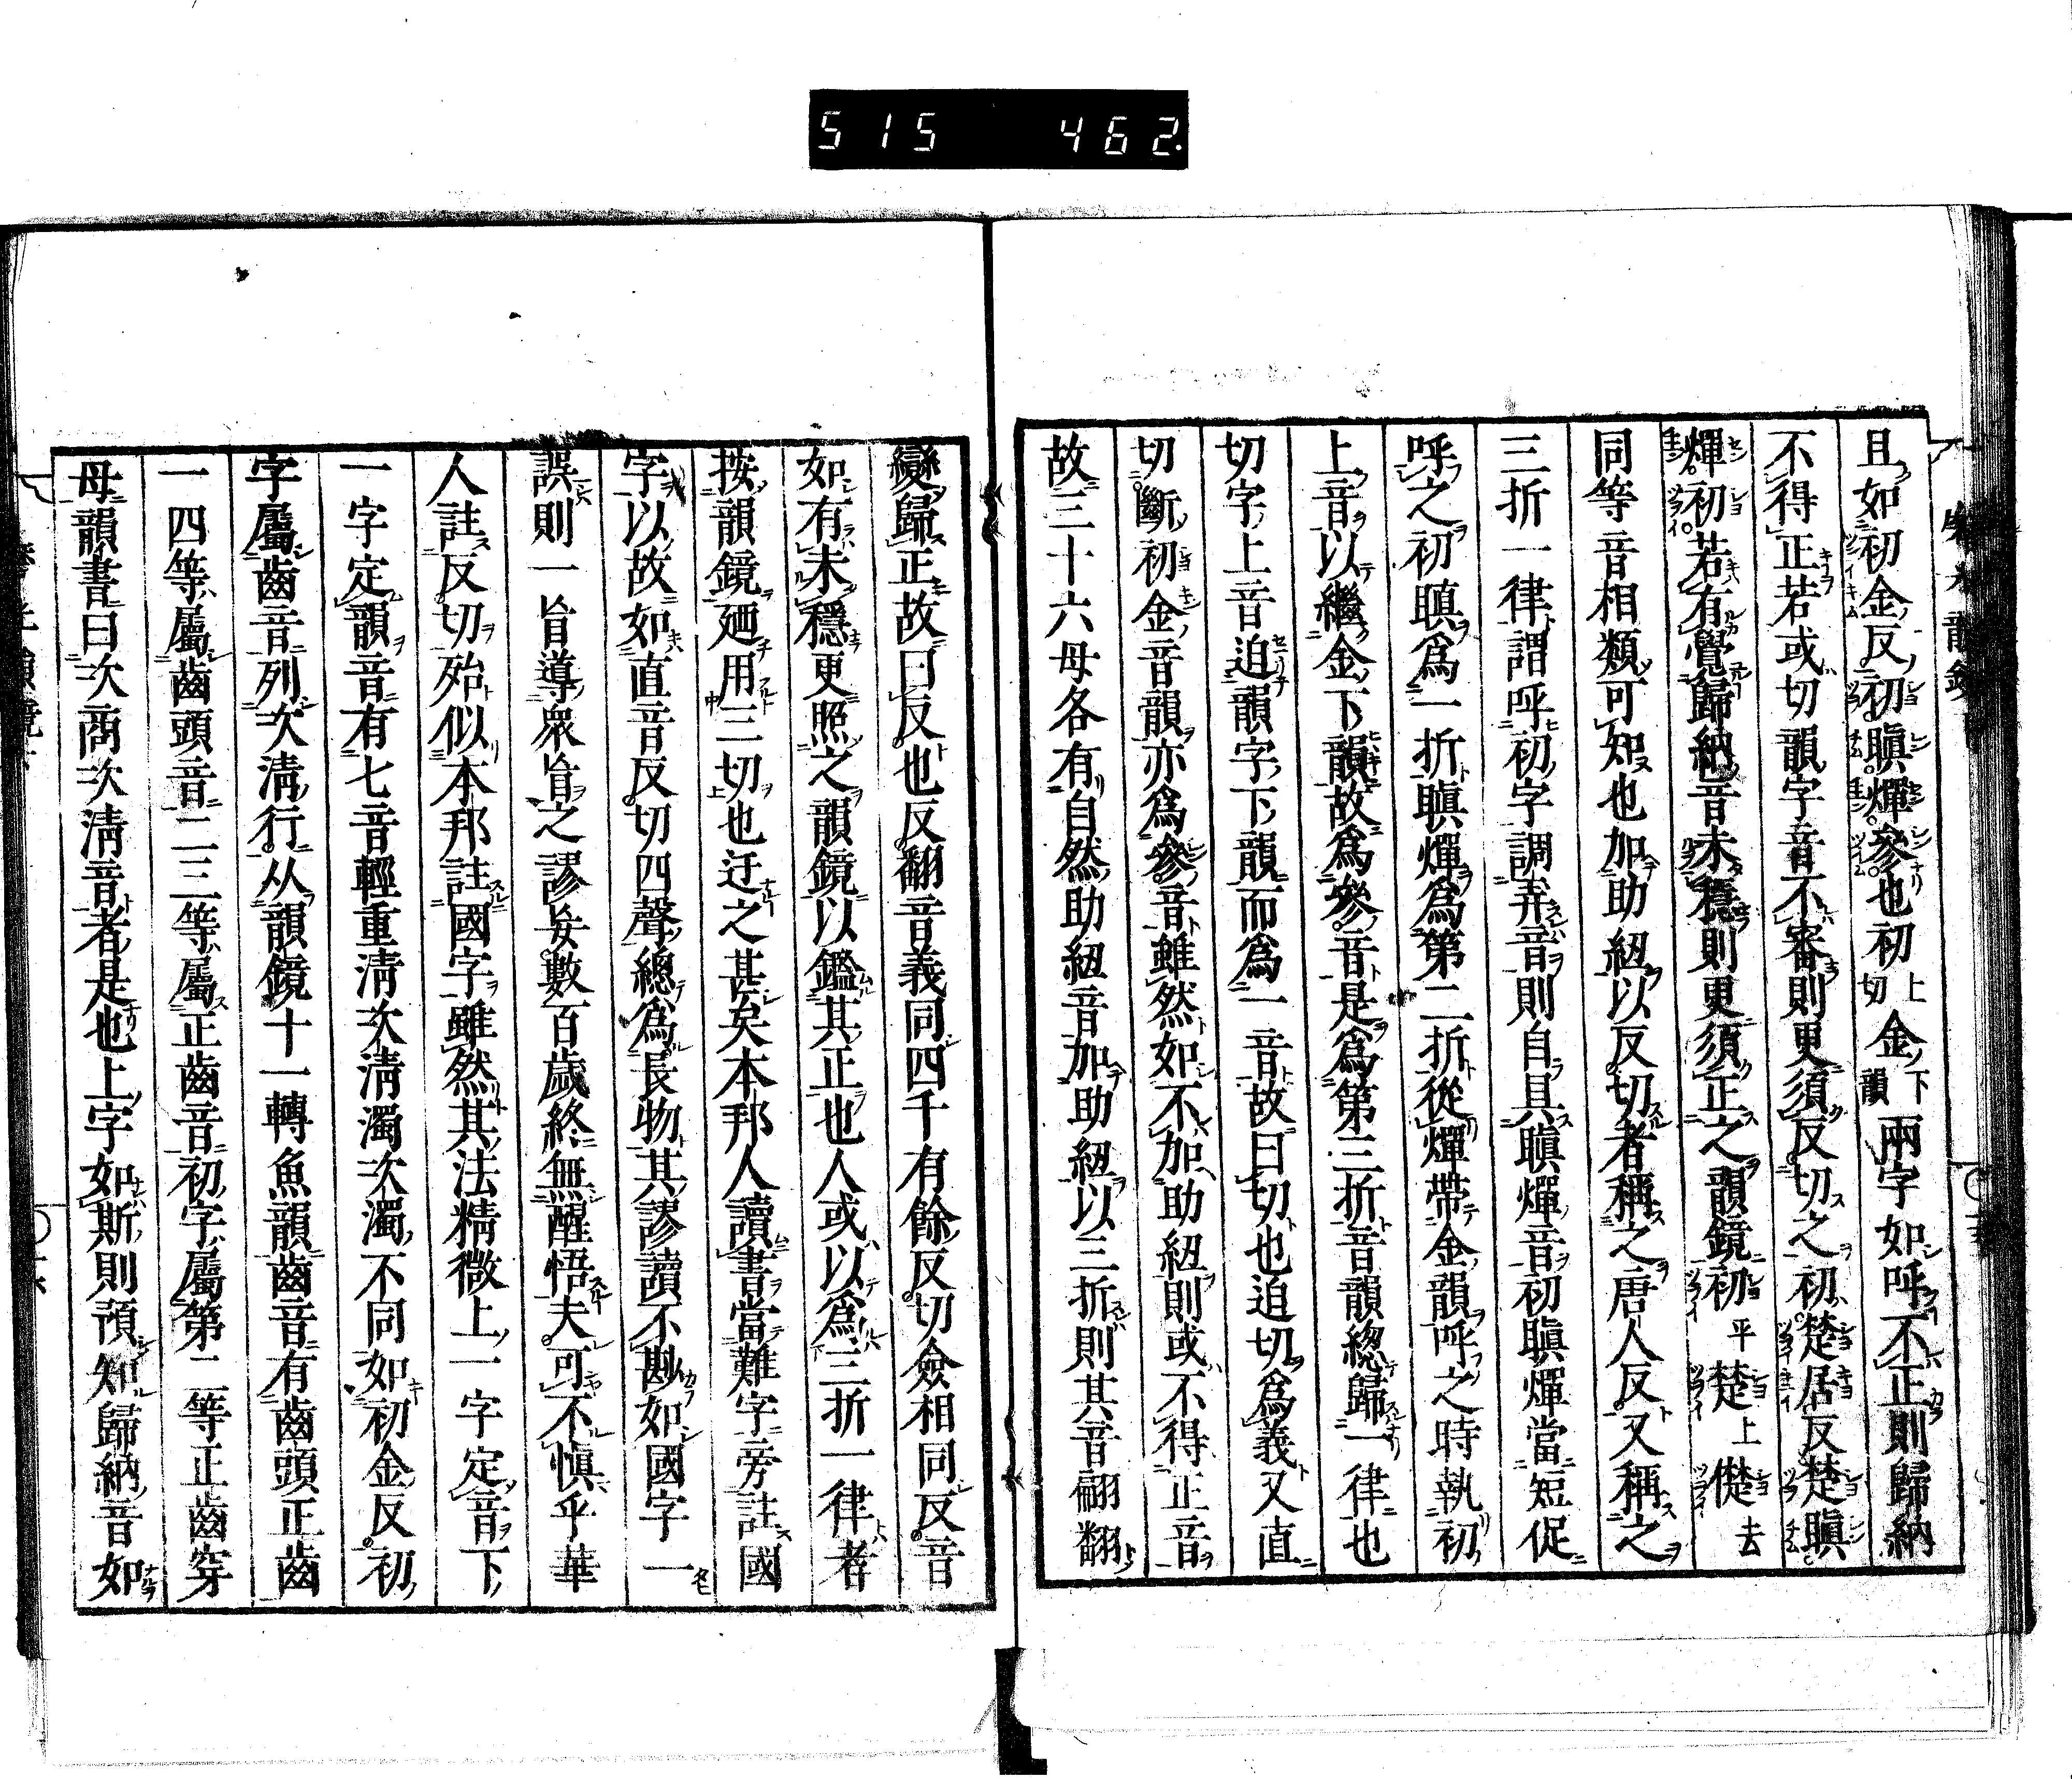 515 462.
且如初金反初瞋燀參也初上切金下韻兩字如呼不正則歸納
不得正若或切韻字音不審則更須反切之初楚居反楚瞋
燀初若有覺歸納音未穩則更須正之韻鏡初平楚上憷去
同等音相類可知也加助紐以反切者稱之唐人反又稱之
三折一律謂呼初字調弄音則自具瞋燀音初瞋燀當短促
呼之初瞋爲一折瞋燀爲第二折從燀帶金韻呼之時執初
上音以繼金下韻故爲參音是爲第三折音韻總歸一律也
切字上音迫韻字下韻而爲一音故曰切也迫切爲義又直
切斷初金音韻亦爲參音雖然如不加助紐則或不得正音
故三十六母各有自然助紐音加助紐以三折則其音翩翻
變歸正故曰反也反翻音義同四千有餘反切僉相同反音
如有未穩更照之韻鏡以鑑其正也人或以爲三折一律者
按韻鏡廼用三切也迂之甚矣本邦人讀書當難字旁註國
字以故如直音反切四聲總爲長物其謬讀不尠如國字一
誤則一盲導衆盲之謬妄數百歲終無醒悟夫可不愼乎華
人註反切殆似本邦註國字雖然其法精微上一字定音下
一字定韻音有七音輕重清次清濁次濁不同如初金反初
字屬齒音列次清行从韻鏡十一轉魚韻齒音有齒頭正齒
一四等屬齒頭音二三等屬正齒音初字屬第二等正齒穿
母韻書曰次商次清音者是也上字如斯則預知歸納音如